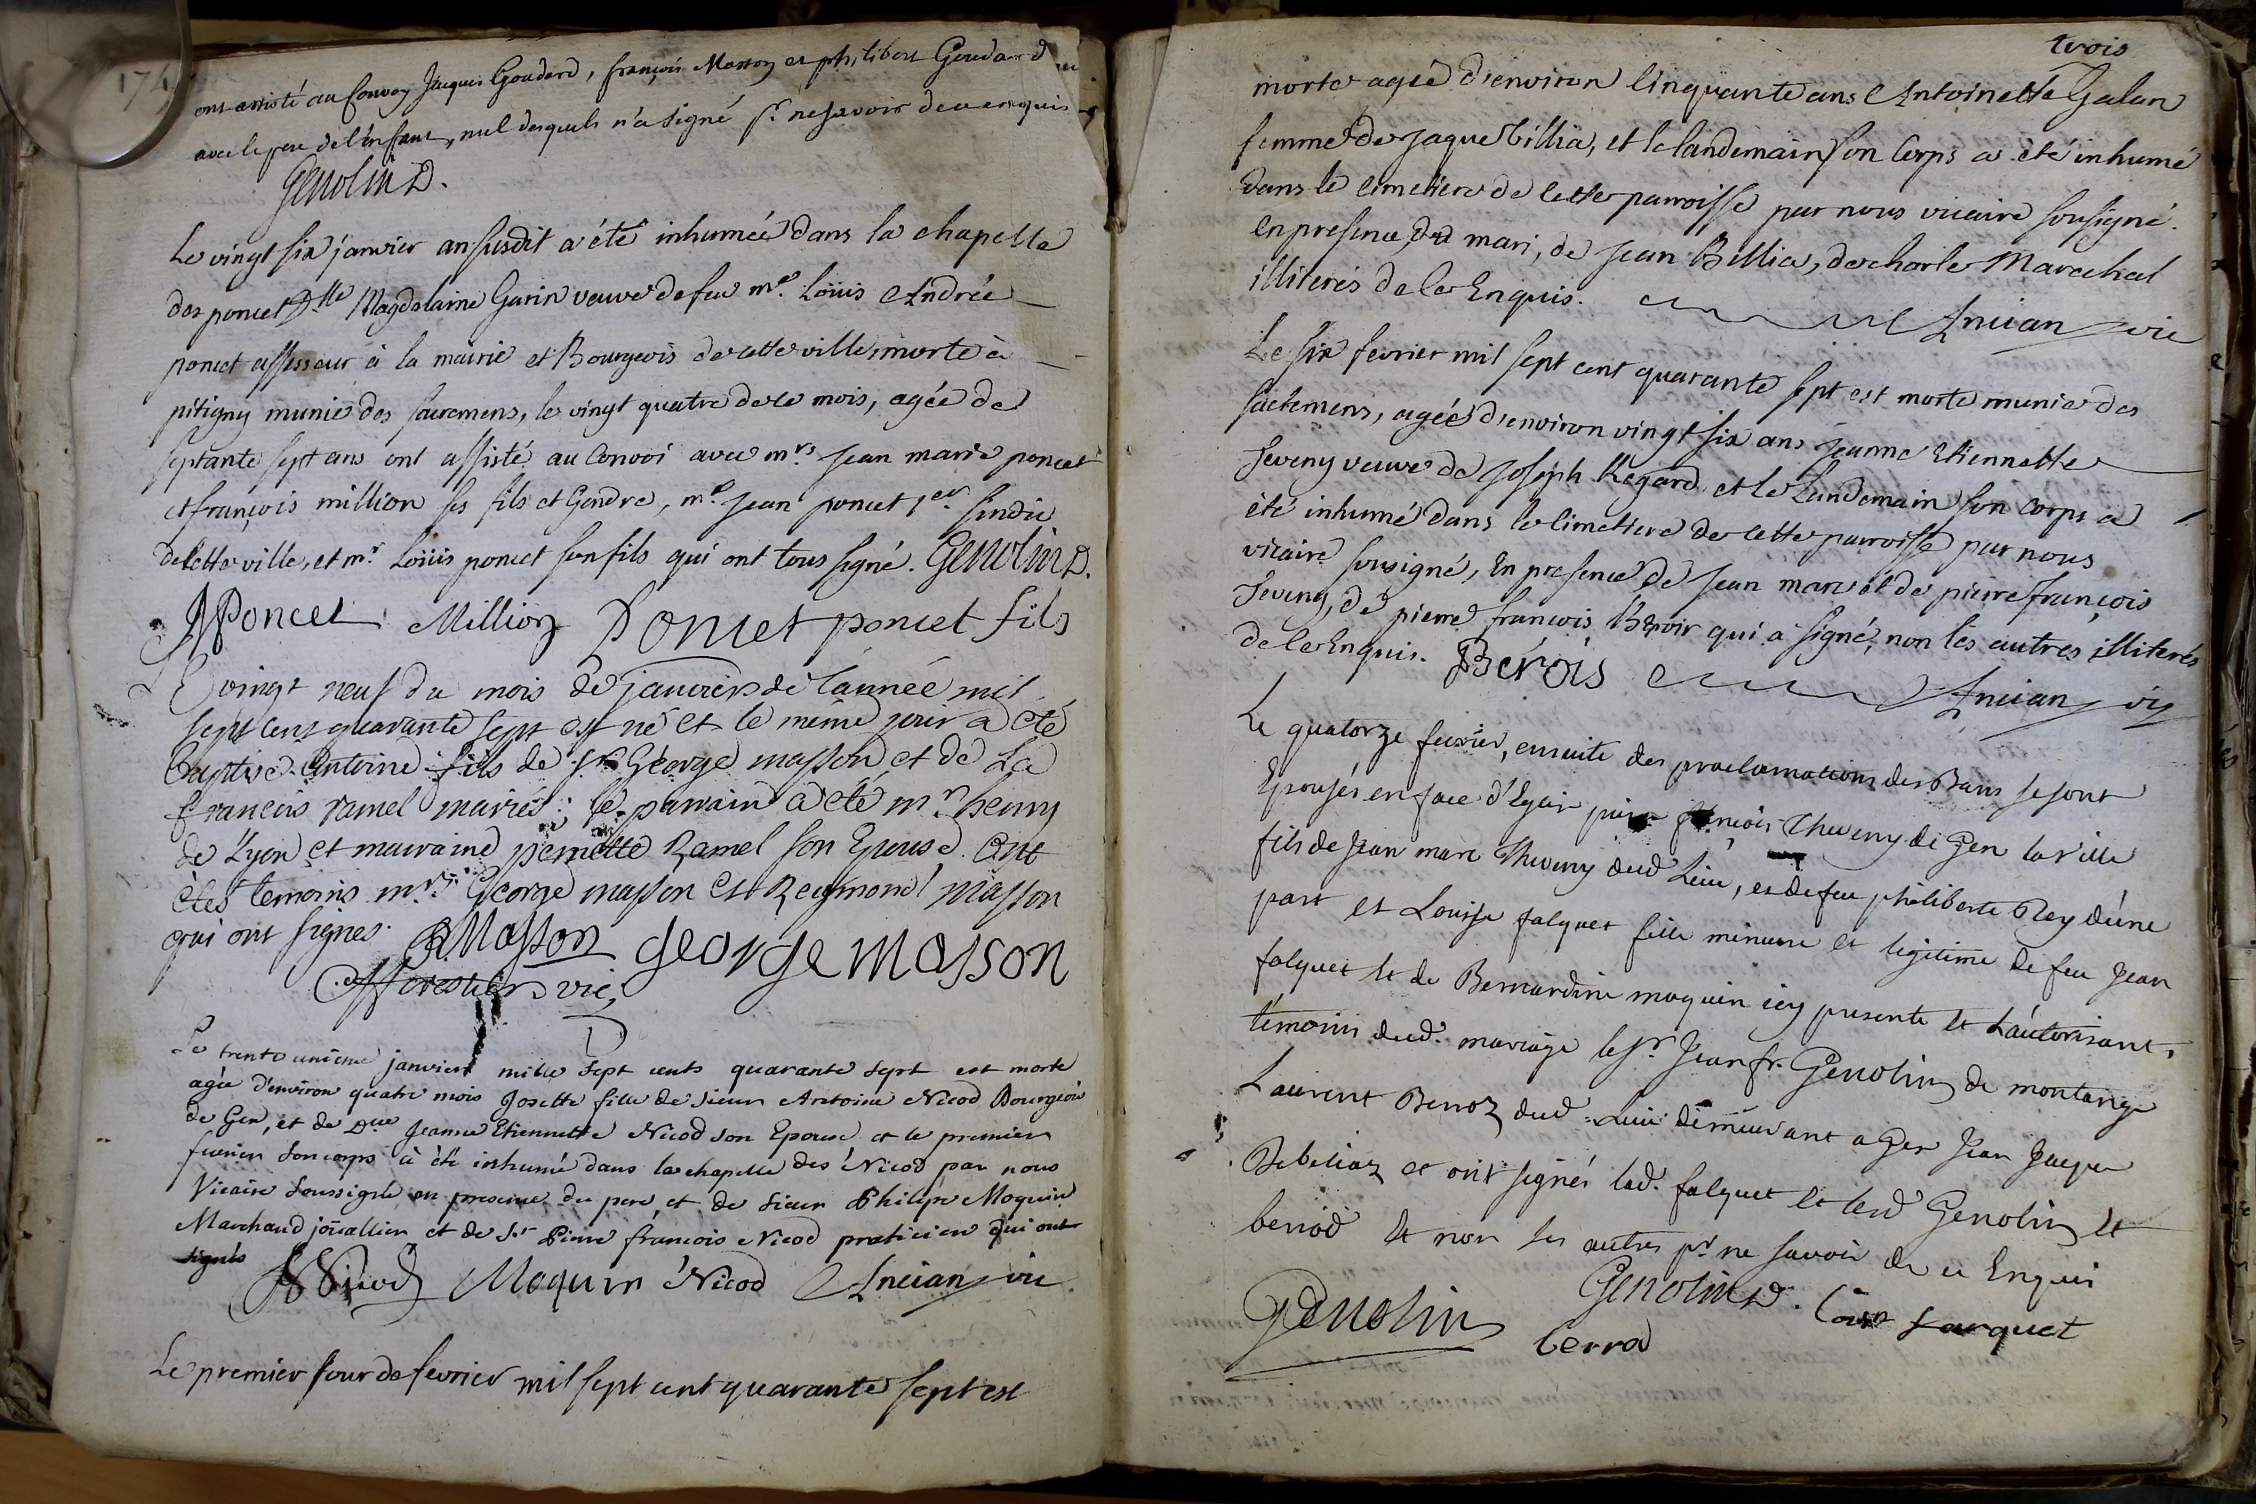 174
ont assisté au Convoy Jacques Goudard, françois Masson et philibert Goudard
avec le pere de l'enfant, nul desquels n'a signé pr. ne savoir de ce enquis
Genolin D.
Le vingt six janvier an susdit a été inhumée dans la chapelle
des poncet Dlle Magdelaine Garin veuve de feu mre. Loüis Andrée
poncet assesseur à la mairie et Bourgeois de cette ville, morte à
pitigny munie des sacremens, le vingt quatre de ce mois, agée de
septante sept ans ont assisté au Convoi avec mrs. jean marie poncet
et françois million ses fils et Gendre, mre. jean poncet 1er. sindic
de cette ville, et mr. Loüis poncet son fils qui ont tous signé. Genolin D.
Poncet Million Poncet poncet fils
Le vingt neuf du mois de janvier de l'année mil
sept cent quarante sept est né et le même jour a été
Baptisé Antoine fils de sr. George masson et de La
francois ramel mariés; le parrain a été mr. henry
de Lyon et marraine pernette Ramel son Epouse. Ont
étés temoins mrs. George masson et Reymond Masson
qui ont signés.
R Masson George Masson
forestier vic
Le trente unieme janvier mille sept cents quarante sept est morte
agée d'environ quatre mois Josette fille de sieur Antoine Nicod Bourgeois
de Gex, et de Dlle Jeanne Etiennette Nicod son Epouse et le premier
fevrier son corps à été inhumé dans la chapelle des Nicod par nous
Vicaire soussigné en presence du pere, et de sieur Philipe Moquin
Marchand joüallier et de sr. Pierre francois Nicod praticien qui ont
signés
Nicod Moquin Nicod Ancian vic
Le premier jour de fevrier mil sept cent quarante sept est
trois
morte agée d'environ Cinquante ans Antoinette Galan
femme de jaque Billia, et le landemain son Corps a été inhumé
dans le cimetiere de cette parroisse par nous vicaire sousigné.
En presence du mari, de jean Billia, de charle Marechal
illiterés de ce Enquis. Ancian vic
Le six fevrier mil sept cent quarante sept est morte munie des
sactemens, agée d'environ vingt six ans jeanne Etiennette
Seveny veuve de joseph Regard et le Landemain son corps a
été inhumé dans le cimetiere de cette parroisse par nous
vicaire sousigné, En presence de jean marc et de pierre françois
Seveny, de pierre francois Beroir qui a signé, non les autres illiterés
de ce Enquis. Bérois Ancian vic
Le quatorze fevrier, ensuite des proclamations des Bans se sont
Epousés en face d'Egise pierre françois Theveny de Gex la ville
fils de Jean marc Theveny dud. Lieu, et de feu philiberte Rey d'une
part et Louise falquet fille mineure et legitime de feu Jean
falquet et de Bernardine moquin icy presente et L'autorisant.
témoins dud. mariage le sr. Jean fr. Genolin de montange
Laurent Benoz dud. Lieu demeurant a Gex Jean Jacques
Debiliaz et ont signés lad. falquet et led. Genolin et
benod et non les autres pr. ne savoir de ce Enquis
Genolin Genolin D.